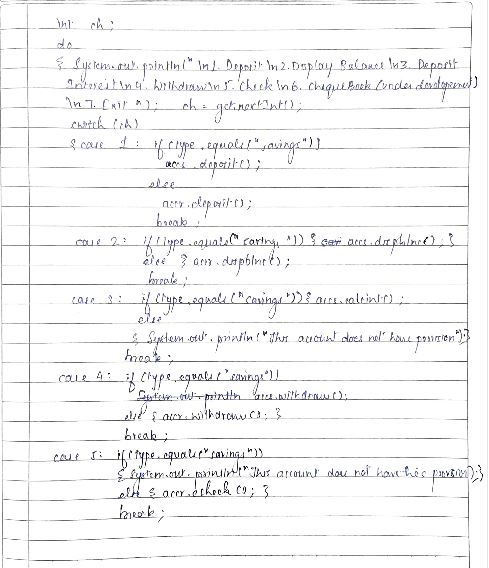 int ch;
do
{ System.out.println("\n1. Deposit \n2. Display Balance \n3. Deposit
Interest \n4. Withdraw \n5. Check \n6. Cheque Book (under development)
\n7. Exit "); ch = get.nextInt();
switch (ch)
{ case 1: if (type.equals("savings"))
accs.deposit();
else
accr.deposit();
break;
case 2: if (type.equals("savings")) { accs.dispblnc(); }
else { accr.dispblnc();
break;
case 3: if (type.equals("savings")) { accs.calcint();
else
{ System.out.println("This account does not have provision");}
break;
case 4: if (type.equals("savings"))
System.out.println accs.withdraw();
else { accr.withdraw(); }
break;
case 5: if (type.equals("savings"))
{ System.out.println("This account does not have this provision");}
else { accr.check(); }
break;